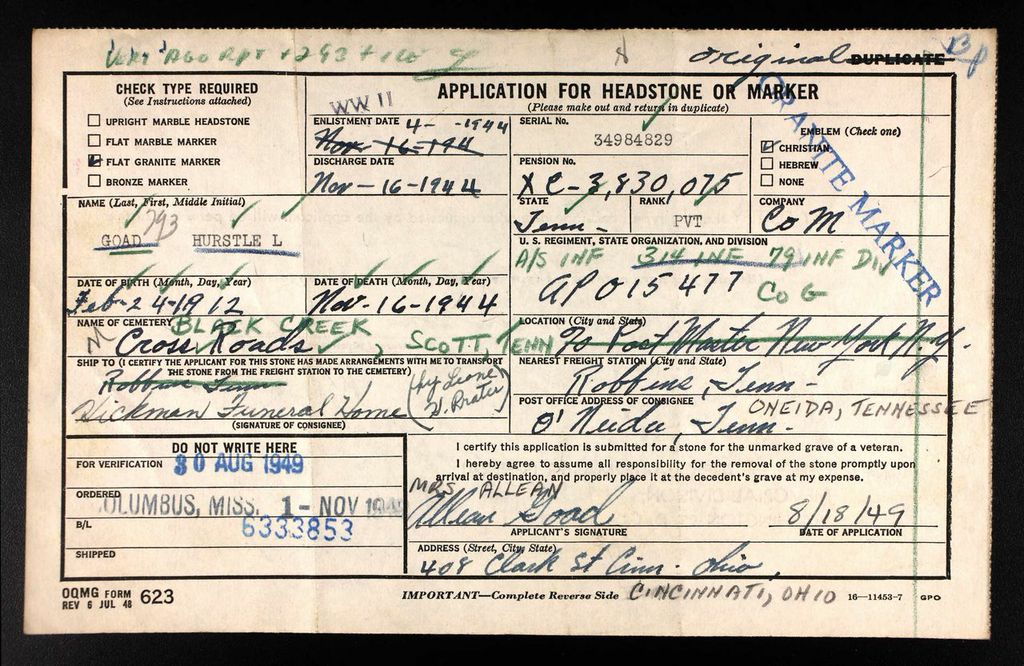 original DUPLICATE
CHECK TYPE REQUIRED
(See Instructions attached)
UPRIGHT MARBLE HEADSTONE
FLAT MARBLE MARKER
FLAT GRANITE MARKER
BRONZE MARKER
WW II
APPLICATION FOR HEADSTONE OR MARKER
(Please make out and return in duplicate)
ENLISTMENT DATE 4- -1944
Nov-16-194
DISCHARGE DATE
Nov-16-1944
SERIAL No.
34984829
PENSION No.
XC-3,830,075
EMBLEM (Check one)
CHRISTIAN
HEBREW
NONE
GRANITE MARKER
NAME (Last, First, Middle Initial)
GOAD HURSTLE L
293
STATE
Tenn-
RANK
PVT
COMPANY
Co M
U. S. REGIMENT, STATE ORGANIZATION, AND DIVISION
A/S INF 314 INF 79 INF DIV
APO 15477
Co G
DATE OF BIRTH (Month, Day, Year)
Feb-24-1912
DATE OF DEATH (Month, Day, Year)
Nov-16-1944
NAME OF CEMETERY BLACK CREEK
Cross Roads, SCOTT, TENN
LOCATION (City and State)
Post Master New York N.Y.
SHIP TO (I CERTIFY THE APPLICANT FOR THIS STONE HAS MADE ARRANGEMENTS WITH ME TO TRANSPORT
THE STONE FROM THE FREIGHT STATION TO THE CEMETERY)
Robbins Tenn
Hickman Funeral Home
(SIGNATURE OF CONSIGNEE)
NEAREST FREIGHT STATION (City and State)
Robbins, Tenn-
POST OFFICE ADDRESS OF CONSIGNEE
ONEIDA, TENNESSEE
O'Neida, Tenn.
DO NOT WRITE HERE
FOR VERIFICATION 30 AUG 1949
ORDERED
COLUMBUS, MISS. 1- NOV
6333853
B/L
SHIPPED
I certify this application is submitted for a stone for the unmarked grave of a veteran.
I hereby agree to assume all responsibility for the removal of the stone promptly upon
arrival at destination, and properly place it at the decedent's grave at my expense.
MRS. ALLEAN
Allean Goad
APPLICANT'S SIGNATURE
8/18/49
DATE OF APPLICATION
ADDRESS (Street, City, State)
408 Clark St Cinn. Ohio.
OQMG FORM
REV 6 JUL 48 623
IMPORTANT—Complete Reverse Side CINCINNATI, OHIO
16—11453-7 GPO